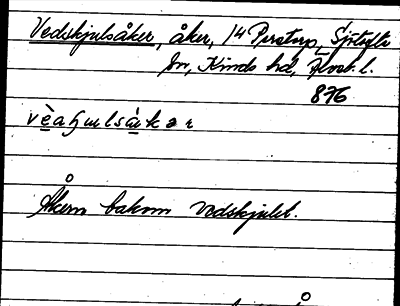 Vedskjulsåker, åker, 14 Perstorp, Sjötofta
sn, Kinds hd, Älvsb. l.
876
vèaɧulsàkar
Åkern bakom vedskjulet.